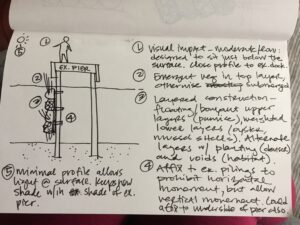 ⑤
①
EX. PIER
②
③
④
⑤ minimal profile allows
light @ surface. Keeps
shade w/in shade of ex.
pier.
① Visual impact - moderate/low:
designed to sit just below the
surface. close profile to ex. dock
② Emergent veg in top layer,
otherwise submerged
③ Layered construction -
floating/buoyant upper
layers (pumice), weighted
lower layers (oyster,
mussel shells). Alternate
layers w/ planting (dense)
and voids (habitat).
④ Affix to ex. pilings to
prohibit horizontal
movement, but allow
vertical movement. Could
affix to underside of pier also.